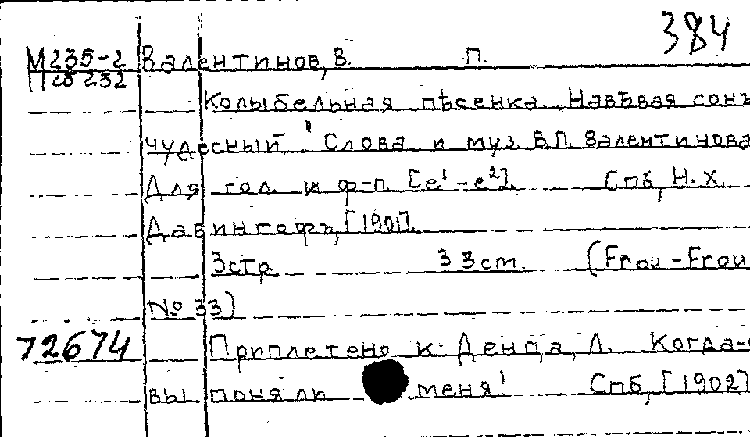 384
М235-2 Валентинов, В. П.
П 25 232
Колыбельная пѣсенка. Навѣвая сонъ
чудесный! Слова и муз. В.П. Валентинова
Для гол. и ф-п. [e¹-e²]. Спб, Н. Х.
Давингофъ, [1901].
3 стр. 33 cm. (Frou-Frou
№ 33)
72674 Приплетено к: Денца, Л. Когда-б
вы поняли меня! Спб, [1902]